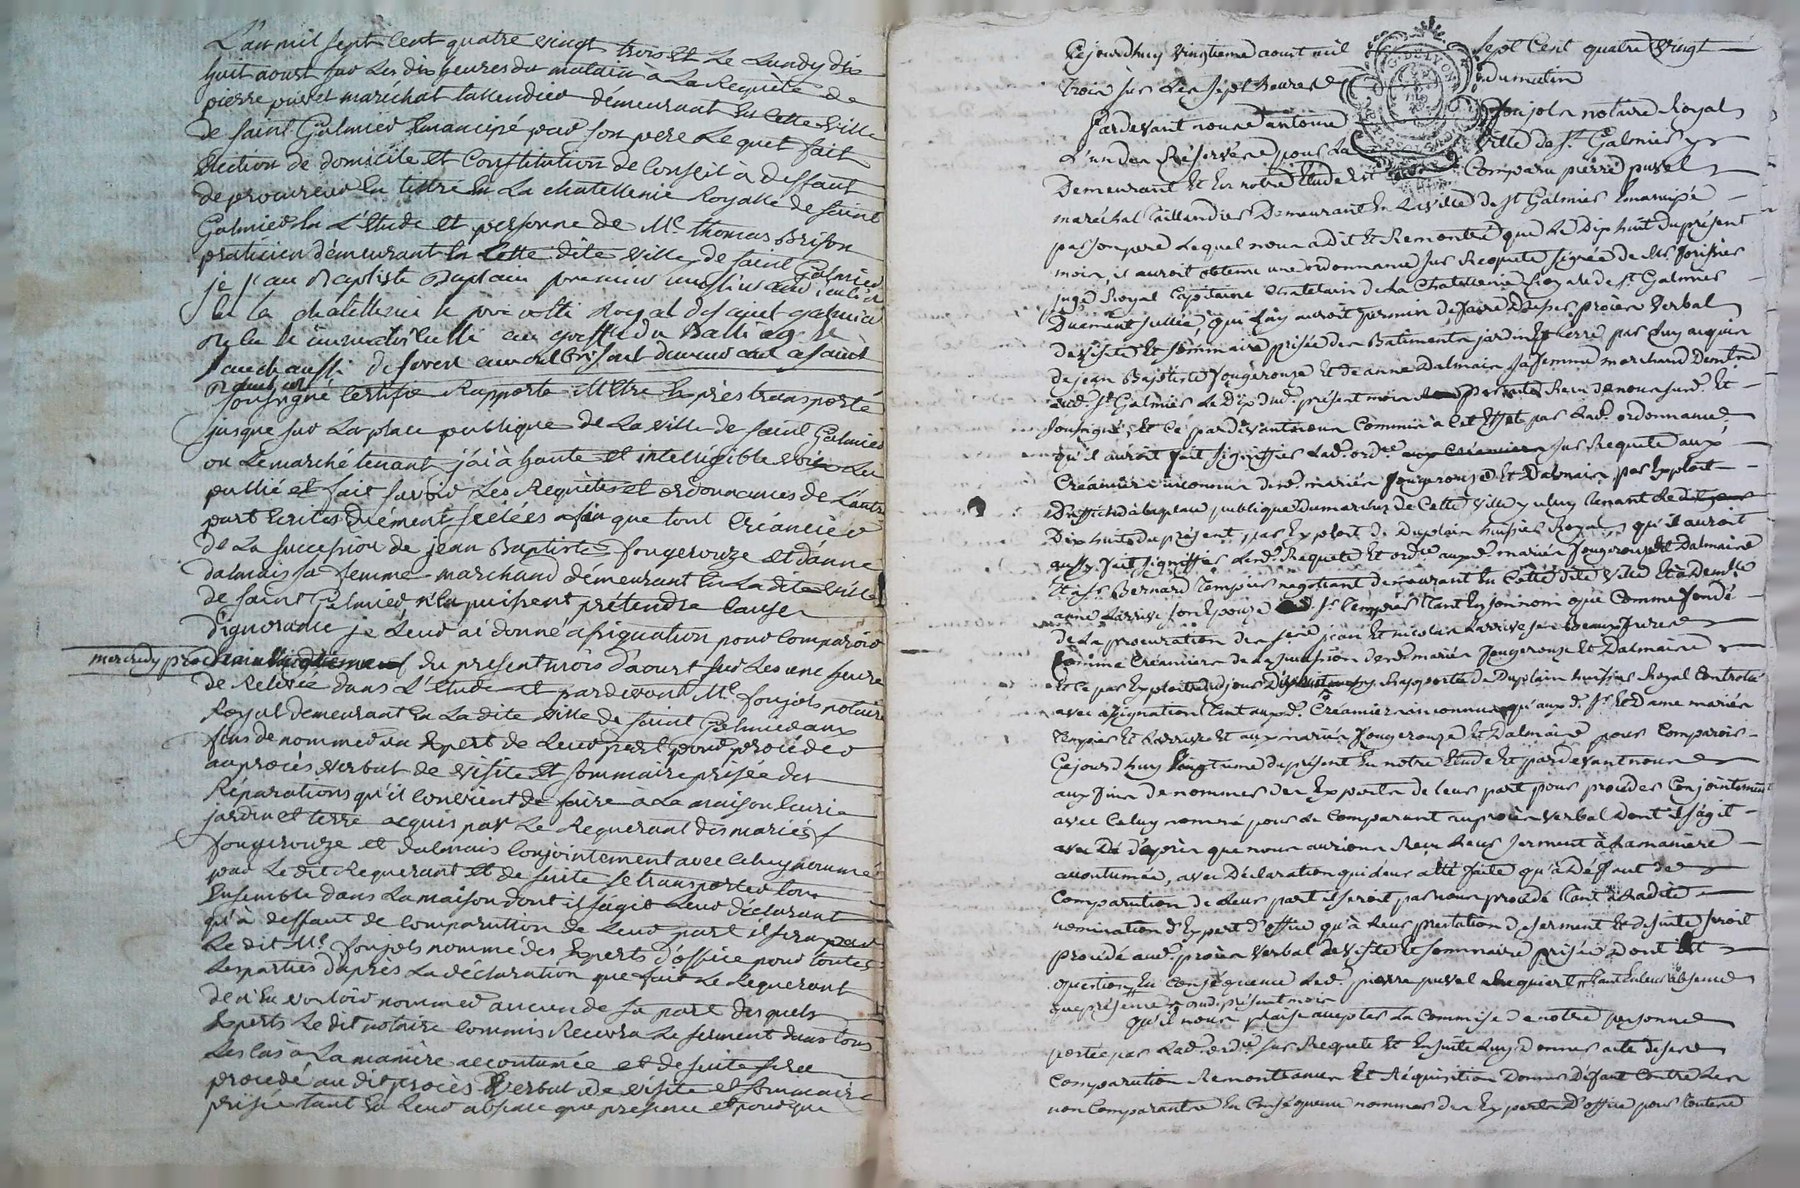 L'an mil sept cent quatre vingt trois et le Lundy dix
huit aoust sur les dix heures du matin a La Requête de
pierre puvel maréchal taillendier démeurant En Cette ville
de saint Galmier Emancipé par son pere Lequel fait
Election de domicile et Constitution de Conseil à deffaut
de procureur En tittre En La chatellenie Royalle de saint
Galmier En L'Etude et personne de Me thomas Brison
praticien démeurant En Cette dite ville de saint Galmier
je jean Baptiste Duplain premier huissier
En la chatellenie Royal de saint galmier
soussigné Certifie Rapporte M'être Exprès transporté
jusque sur La place publique de La ville de saint Galmier
ou Le marché tenant j'ai à haute et intelligible voix Lu
publié et fait savoir Les Requêtes et ordonnances de L'autre
part Ecrites Duëment scélées afin que tout Créancier
de La succession de jean Baptiste fougerouze et d'anne
dalmais sa femme marchand démeurant En La dite ville
de saint Galmier n'En puissent prétendre Cause
D'ignorance je Leur ai donné assignation pour Comparoir
mercredy prochain vingtieme du present mois d'aoust sur Les une heure
de Relevée dans L'Etude et pardevant Me foujols notaire
Royal demeurant En La dite ville de saint Galmier aux
fins de nommer un Expert de Leur part pour proceder
au procès verbal de visite et sommaire prisée des
Réparations qu'il Convient de faire à La maison Ecurie
jardin et terre acquis par Le Requerant des mariés
fougerouze et dalmais Conjointement avec Celuy nommé
par Le dit Requerant et de suite se transporter tous
Ensemble dans La maison dont il s'agit Leur déclarant
qu'à deffaut de Comparution de Leur part il sera par
Le dit Me foujols nommé des Experts d'office pour toutes
Les parties d'après La déclaration que fait Le Requerant
de n'En vouloir nommer aucun de sa part desquels
Experts Le dit notaire Commis Recevra Le serment dans tous
Les Cas à La manière accoutumée et de suite sera
procédé au dit procès verbal de visite et sommaire
prisée tant En Leur absence que presence et pour que
Cejourdhuy vingtieme aoust mil sept Cent quatre Vingt
trois sur Les sept heures du matin
Pardevant nous antoine foujols notaire Royal
L'un des Réservés pour La ville de St Galmier y
Demeurant Et En notre Etude Est Comparu pierre puvel
maréchal taillandier Demeurant En La ville de St Galmier Emancipé
par son pere Lequel nous a dit Et Remontré que Le Dix huit du présent
mois il auroit obtenu une ordonnance sur Requete signée de Mr
juge Royal Capitaine Chatelain de La Chatellenie Royale de St Galmier
Duement scellée, qui Luy auroit permis de faire Dresser procès Verbal
de visite Et sommaire prisée des Batiments jardin Et terre par Luy acquis
de jean Baptiste fougerouze Et de anne Dalmais sa femme marchand Demeurant
aud. St Galmier Le Dix dud. présent mois Reçu de nous sousd. Et
soussigné, Et Ce pardevant nous Commis à Cet Effet par Lad. ordonnance
qu'il auroit fait signiffier Lad. ordce sur Requete aux
Créanciers inconnus desd. mariés fougerouze Et Dalmais par Exploit
à la place publique du marché de Cette Ville y celuy tenant
Dix huit du présent, par Exploit de Duplain huissier Royal, qu'il auroit
aussy fait signiffier Lesd. Requete Et ordce auxd. mariés fougerouze Et Dalmais
Et à Sr Bernard Tempier negotiant demeurant En Cette dite Ville Et à Demlle
anne Larrive son Epouze Sr Tempier tant En son nom que Comme fondé
de La procuration des sieurs jean Et nicolas Larrive ses Beaux freres
Comme Créanciers de La succession desd. mariés fougerouze Et Dalmais
Et Ce par Exploit dud jour Rapporté de Duplain huissier Royal Controlé
avec assignation tant auxd. Créanciers inconnus qu'aux d. Sr Et Dame mariés
Tempier Et Larrive Et aux mariés fougerouze Et Dalmais pour Comparoir
Cejourdhuy vingtieme du présent En notre Etude Et pardevant nous
aux fins de nommer des Experts de leur part pour proceder Conjointement
avec Celuy nommé pour Le Comparant au procès verbal Dont il s'agit
après que nous aurions Reçu Leur serment à La maniere
accoutumée, avec Déclaration qui Leur a été faite qu'à Déffaut de
Comparution de Leur part il seroit par nous procédé tant à Ladite
nomination d'Expert d'office qu'à Leur prestation de serment Et de suite seroit
procédé aud. procès verbal de visite Et sommaire prisée Dont Est
question, En Conséquence Led. pierre puvel Requiert tant En leur absence
que présence
qu'il nous plaise accepter La Commise de notre personne
portée par Lad. ordce sur Requete Et Ensuite Luy donner acte de ses
Comparution Remontrance Et Réquisition Donner Défaut Contre Les
non Comparants En Conséquence nommer des Experts D'office pour toutes